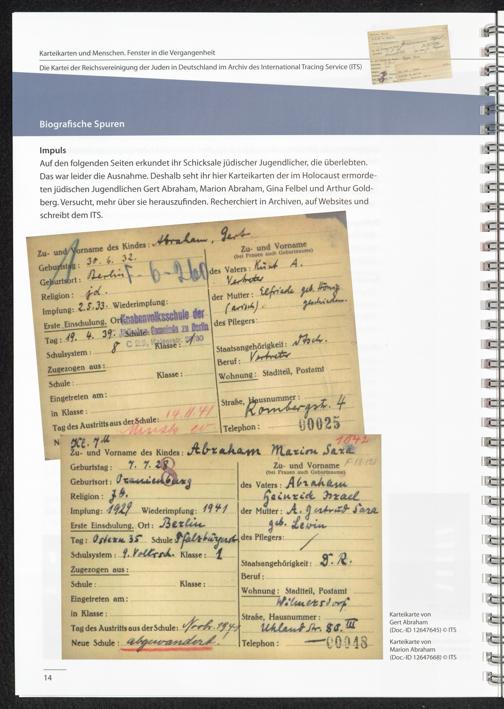 Karteikarten und Menschen. Fenster in die Vergangenheit
Die Kartei der Reichsvereinigung der Juden in Deutschland im Archiv des International Tracing Service (ITS)
Biografische Spuren
Impuls
Auf den folgenden Seiten erkundet ihr Schicksale jüdischer Jugendlicher, die überlebten.
Das war leider die Ausnahme. Deshalb seht ihr hier Karteikarten der im Holocaust ermorde-
ten jüdischen Jugendlichen Gert Abraham, Marion Abraham, Gina Felbel und Arthur Gold-
berg. Versucht, mehr über sie herauszufinden. Recherchiert in Archiven, auf Websites und
schreibt dem ITS.
Zu- und Vorname des Kindes: Abraham, Gert
Geburtstag: 30. 6. 32.
Geburtsort: Berlin
Religion: jd.
Impfung: 2.5.33. Wiederimpfung:
Erste Einschulung, Ort:
Knabenvolksschule der
Tag: 19. 4. 39.
Schulsystem: 8 Klasse:
Zugezogen aus:
Schule: Klasse:
Eingetreten am:
in Klasse:
Tag des Austritts aus der Schule: 14.11.41
Zu- und Vorname
(bei Frauen auch Geburtsname)
des Vaters: Kurt A.
Vertreter
der Mutter: Elfriede geb. König
(arisch) geschieden.
des Pflegers:
Staatsangehörigkeit: Dtsch.
Beruf: Vertreter
Wohnung: Stadtteil, Postamt
Straße, Hausnummer:
Rombergst. 4
Telephon: 00025
Kl. 7M
1042
Zu- und Vorname des Kindes: Abraham Marion Sara
Geburtstag: 7. 7. 28
Geburtsort: Oranienburg
Religion: jd.
Impfung: 1929 Wiederimpfung: 1941
Erste Einschulung, Ort: Berlin
Tag: Ostern 35 Schule Pfalzburgerst
Schulsystem: 9. Volkssch. Klasse: 1
Zugezogen aus:
Schule: Klasse:
Eingetreten am:
in Klasse:
Tag des Austritts aus der Schule: Novb. 1941
Neue Schule: abgewandert.
Zu- und Vorname
(bei Frauen auch Geburtsname)
des Vaters: Abraham
Heinrich Israel
der Mutter: A. Gertrud Sara
geb. Levin
des Pflegers:
Staatsangehörigkeit: D. R.
Beruf:
Wohnung: Stadtteil, Postamt
Wilmersdorf
Straße, Hausnummer:
Uhland Str. 85. III
Telephon: 00048
Karteikarte von
Gert Abraham
(Doc.-ID 12647645) © ITS
Karteikarte von
Marion Abraham
(Doc.-ID 12647668) © ITS
14